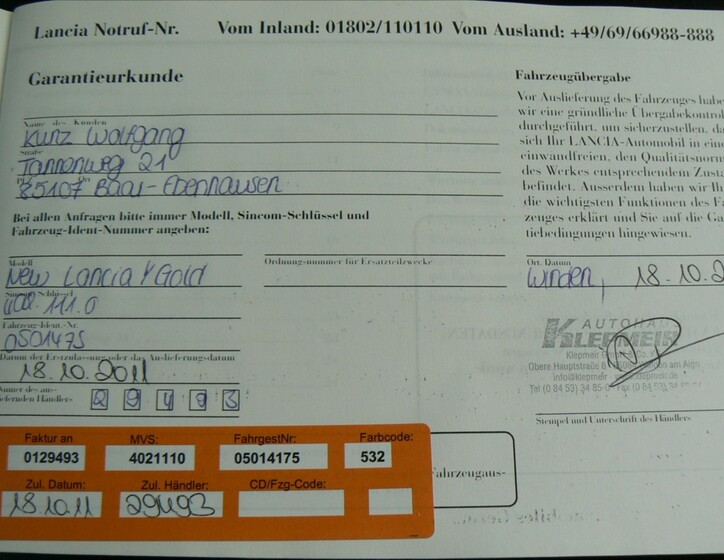 Lancia Notruf-Nr. Vom Inland: 01802/110110 Vom Ausland: +49/69/66988-888
Garantieurkunde
Name des Kunden
Kunz Wolfgang
Straße
Tannenweg 21
85107 Baar-Ebenhausen
Bei allen Anfragen bitte immer Modell, Sincom-Schlüssel und
Fahrzeug-Ident-Nummer angeben:
Modell
New Lancia Y Gold
Ordnungsnummer für Ersatzteilzwecke
402.111.0
Fahrzeug-Ident.-Nr.
Datum der Erstzulassung oder das Auslieferungsdatum
18.10.2011
Nummer des aus-
liefernden Händlers
2 9 4 9 3
Fahrzeugübergabe
Vor Auslieferung des Fahrzeuges habe
wir eine gründliche Übergabekontrol
durchgeführt, um sicherzustellen, da
sich Ihr LANCIA-Automobil in eine
einwandfreien, den Qualitätsnorm
des Werkes entsprechendem Zusta
befindet. Ausserdem haben wir Ih
die wichtigsten Funktionen des Fa
zeuges erklärt und Sie auf die Ga
tiebedingungen hingewiesen.
Ort, Datum
Winden, 18.10.2
AUTOHAU
KLEPMEIR
Klepmeir
Obere Hauptstraße
Stempel und Unterschrift des Händlers
Faktur an MVS: FahrgestNr: Farbcode:
0129493 4021110 05014175 532
Zul. Datum: Zul. Händler: CD/Fzg-Code:
18.10.11 29493
Fahrzeugaus-